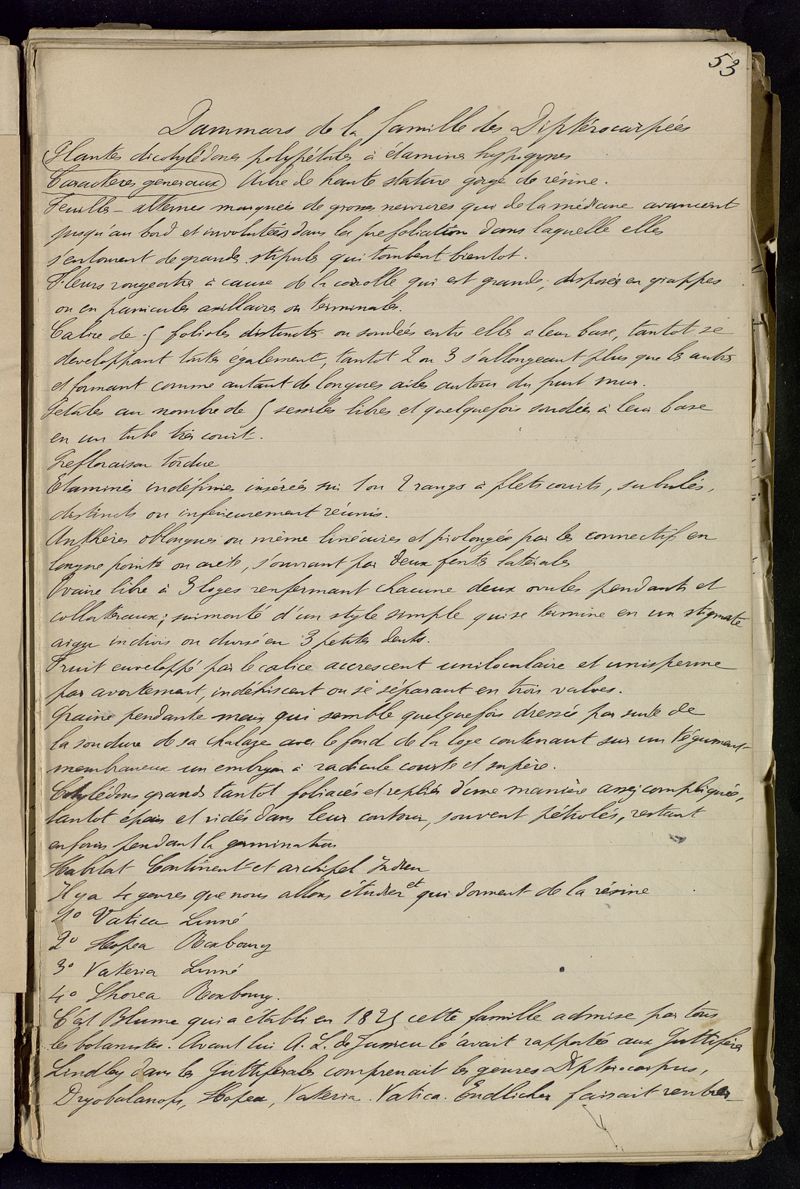 53
Dammars de la famille des Diptérocarpées
Plantes dicotylédones polypétales à étamines hypogynes
Caractères généraux Arbre de haute stature gorgé de résine.
Feuilles – alternes marquées de grosses nervures qui de la médiane avancent
jusqu'au bord et involutées dans la préfoliation dans laquelle elles
s'entourent de grandes stipules qui tombent bientôt.
Fleurs rougeatres à cause de la corolle qui est grande, disposées en grappes
ou en panicules axillaires ou terminales.
Calice de 5 folioles distinctes ou soudées entre elles a leur base, tantot se
développant toutes également, tantot 2 ou 3 s'allongeant plus que les autres
et formant comme autant de longues ailes autour du fruit mur.
Pétales au nombre de 5 sessiles libres et quelquefois soudées à leur base
en un tube très court.
Prefloraison tordue
Etamines indéfinies insérées sur 1 ou 2 rangs à filets courts, subulés,
distincts ou inférieurement réunis.
Anthères oblongues ou même linéaires et prolongées par le connectif en
longue pointe ou arête, s'ouvrant par deux fentes latérales
Ovaire libre à 3 loges renfermant chacune deux ovules pendants et
collatéraux; surmonté d'un style simple qui se termine en un stigmate
aigu indivis ou divisé en 3 petites dents.
Fruit enveloppé par le calice accrescent uniloculaire et unisperme
par avortement, indéhiscent ou se séparant en trois valves.
Graine pendante mais qui semble quelquefois dressée par suite de
la soudure de sa chalaze avec le fond de la loge contenant sur un tégument
membraneux un embryon à radicule courte et supère.
Cotylédons grands tantot foliacés et repliés d'une manière assez compliquée,
tantot épais et ridés dans leur contour, souvent pétiolés, restant
enfouis pendant la germination
Habitat Continent et archipel Indien
Il y a 4 genres que nous allons étudier et qui donnent de la résine
1o Vatica Linné
2o Hopea Roxbourg
3o Vateria Linné
4o Shorea Roxbourg.
C'est Blume qui a établi en 1825 cette famille admise par tous
les botanistes. Avant lui A. L. de Jussieu l'avait rapportée aux Guttifères
Lindley dans les Guttiferales comprenait les genres Dipterocarpus,
Dryobalanops, Hopea, Vateria. Vatica. Endlicher faisait rentrer